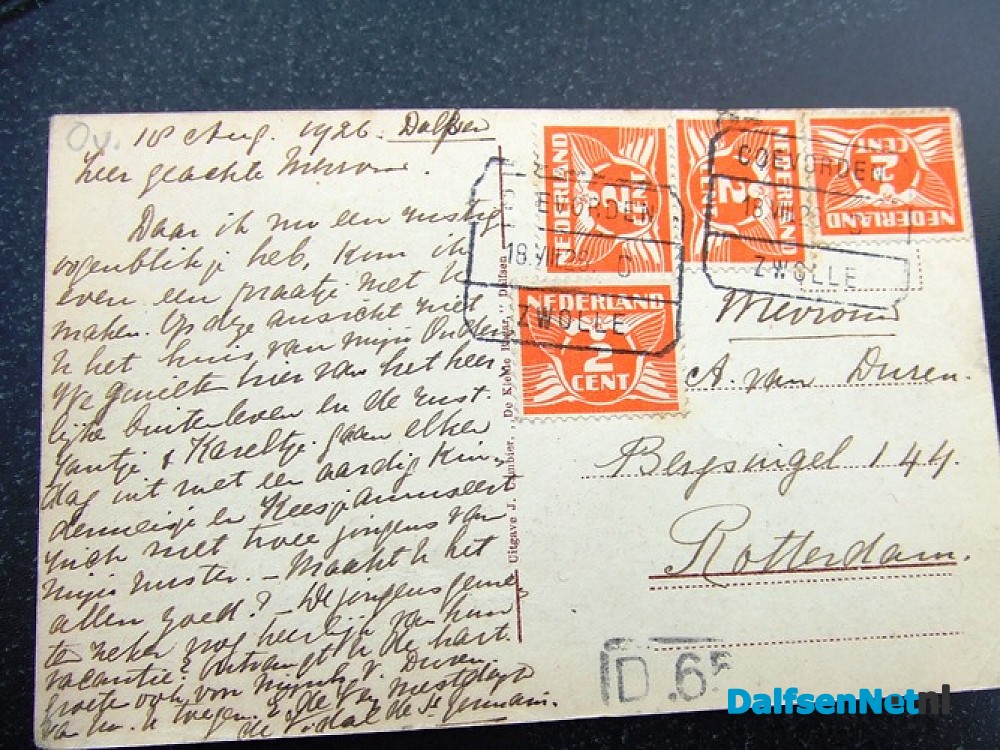 Ov.
18 Aug. 1926. Dalfsen
Zeer geachte Mevrouw.
Daar ik nu een rustig
oogenblikje heb, kom ik
even een praatje met U
maken. Op deze ansicht ziet
U het huis van mijn Ouders
We genieten hier van het heer
lijke buitenleven en de rust.
Jantje & Kareltje gaan elken
dag uit met een aardig kin-
dermeisje en Keesje amuseert
zich met twee jongens van
mijn zuster. - Maakt U het
allen goed? - De jongens
zeker nog heerlijk van hun
vacantie? Ontvangt U de hart.
groeten ook voor Mijnh. v. Duren
van
de Vidal de St. Germain.
Uitgave J. Cambier, "De Kleine Bazar" Dalfsen
NEDERLAND
2
NEDERLAND
2
CENT
NEDERLAND
2
CENT
NEDERLAND
2
CENT
EVORDEN
18.VIII.26. C
ZWOLLE
COEVORDEN
18.VIII.26
ZWOLLE
Mevrouw
A. van Duren.
Bergsingel 144.
Rotterdam.
D.65
DalfsenNet.nl